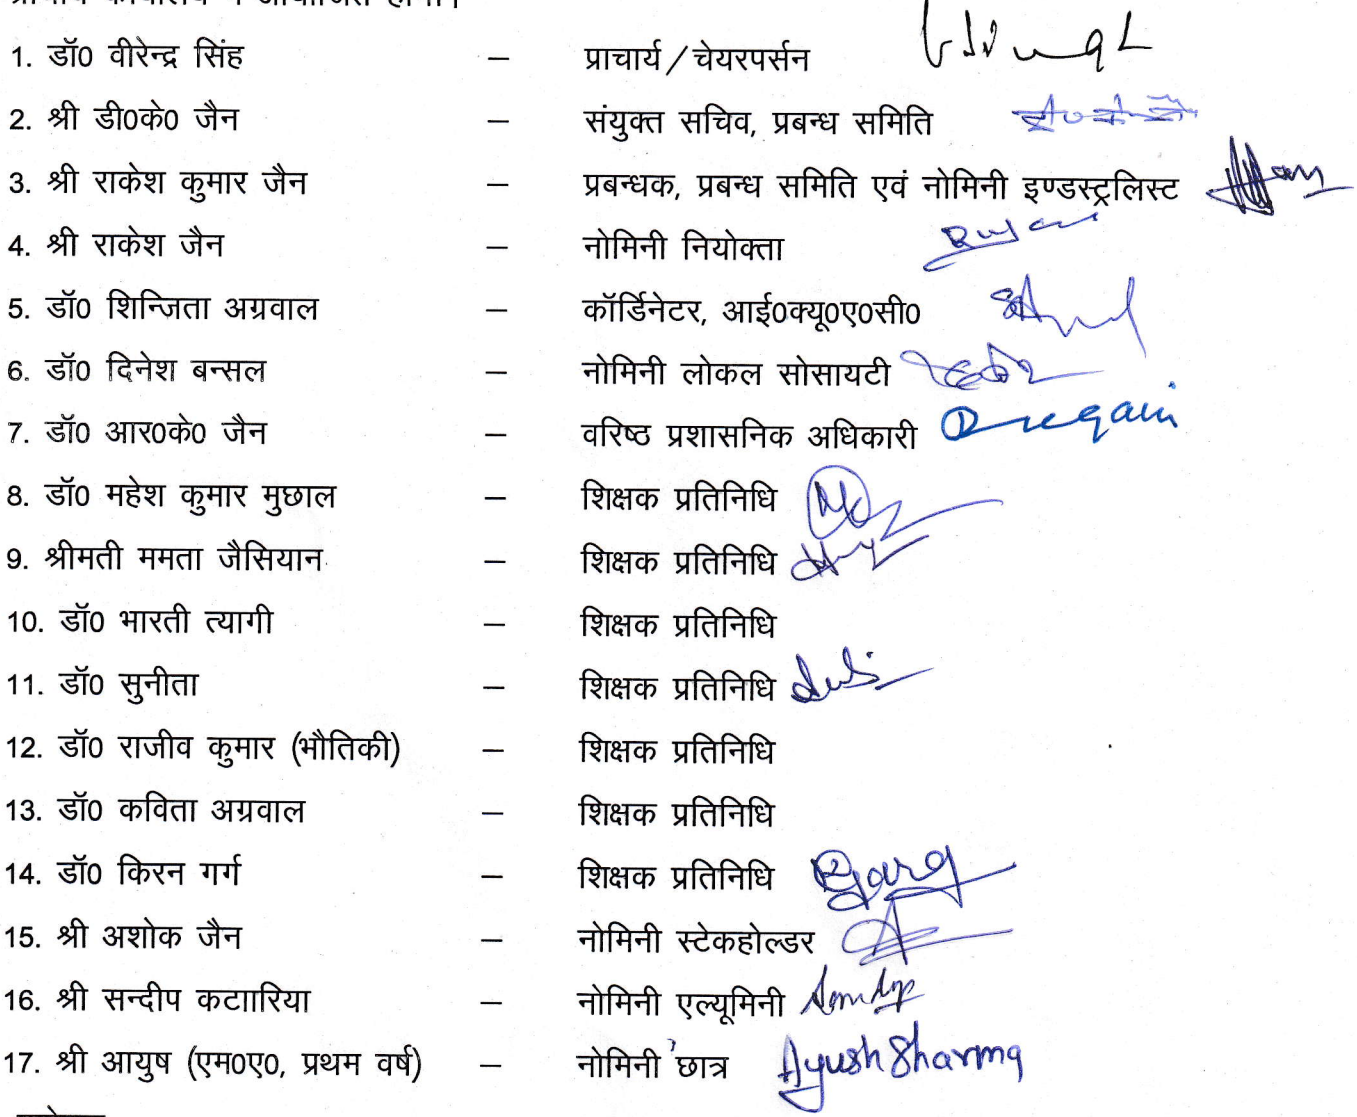 1. डॉ0 वीरेन्द्र सिंह – प्राचार्य/चेयरपर्सन
2. श्री डी0के0 जैन – संयुक्त सचिव, प्रबन्ध समिति
3. श्री राकेश कुमार जैन – प्रबन्धक, प्रबन्ध समिति एवं नोमिनी इण्डस्ट्रलिस्ट
4. श्री राकेश जैन – नोमिनी नियोक्ता
5. डॉ0 शिन्जिता अग्रवाल – कॉर्डिनेटर, आई0क्यू0ए0सी0
6. डॉ0 दिनेश बन्सल – नोमिनी लोकल सोसायटी
7. डॉ0 आर0के0 जैन – वरिष्ठ प्रशासनिक अधिकारी
8. डॉ0 महेश कुमार मुछाल – शिक्षक प्रतिनिधि
9. श्रीमती ममता जैसियान – शिक्षक प्रतिनिधि
10. डॉ0 भारती त्यागी – शिक्षक प्रतिनिधि
11. डॉ0 सुनीता – शिक्षक प्रतिनिधि
12. डॉ0 राजीव कुमार (भौतिकी) – शिक्षक प्रतिनिधि
13. डॉ0 कविता अग्रवाल – शिक्षक प्रतिनिधि
14. डॉ0 किरन गर्ग – शिक्षक प्रतिनिधि Garg
15. श्री अशोक जैन – नोमिनी स्टेकहोल्डर
16. श्री सन्दीप कटाारिया – नोमिनी एल्यूमिनी
17. श्री आयुष (एम0ए0, प्रथम वर्ष) – नोमिनी छात्र Ayush Sharma